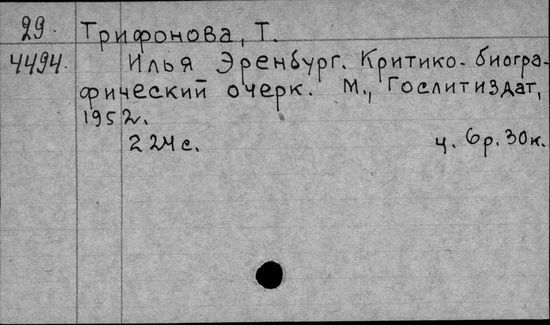 29. Трифонова, Т.
4494. Илья Эренбург. Критико-биогра-
фический очерк. М., Гослитиздат,
1952.
224с. ц. 6р. 30к.